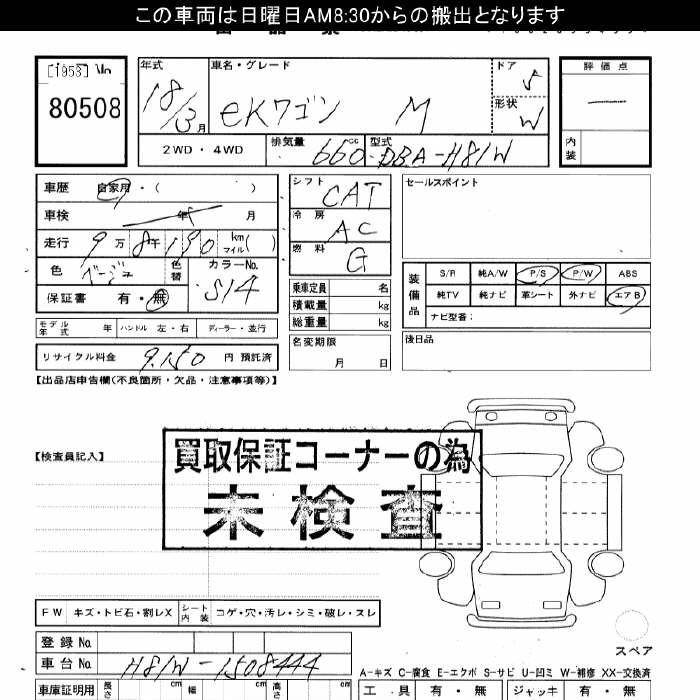 この車両は日曜日AM8:30からの搬出となります
[1953] No
80508
年式 18/3月
車名・グレード eKワゴン M
ドア 5
形状 W
評価点 —
内装
2WD・4WD
排気量 660cc
型式 DBA-H81W
車歴 自家用・( )
車検 年 月
走行 9万8千190 km マイル( )
色 ベージュ 色替 カラーNo. S14
保証書 有・無
モデル年式 年 ハンドル 左・右 ディーラー・並行
リサイクル料金 9,150 円 預託済
シフト CAT
冷房 AC
燃料 G
乗車定員 名
積載量 kg
総重量 kg
名変期限 月 日
セールスポイント
装備品
S/R 純A/W P/S P/W ABS
純TV 純ナビ 革シート 外ナビ エアB
ナビ型番:
後日品
【出品店申告欄(不良箇所・欠品・注意事項等)】
【検査員記入】
買取保証コーナーの為
未検査
FW キズ・トビ石・割レX シート内装 コゲ・穴・汚レ・シミ・破レ・スレ
スペア
登録No
車台No H81W-1508444
A-キズ C-腐食 E-エクボ S-サビ U-凹ミ W-補修 XX-交換済
車庫証明用 長さ cm 幅 cm 高さ cm
工具 有・無 ジャッキ 有・無